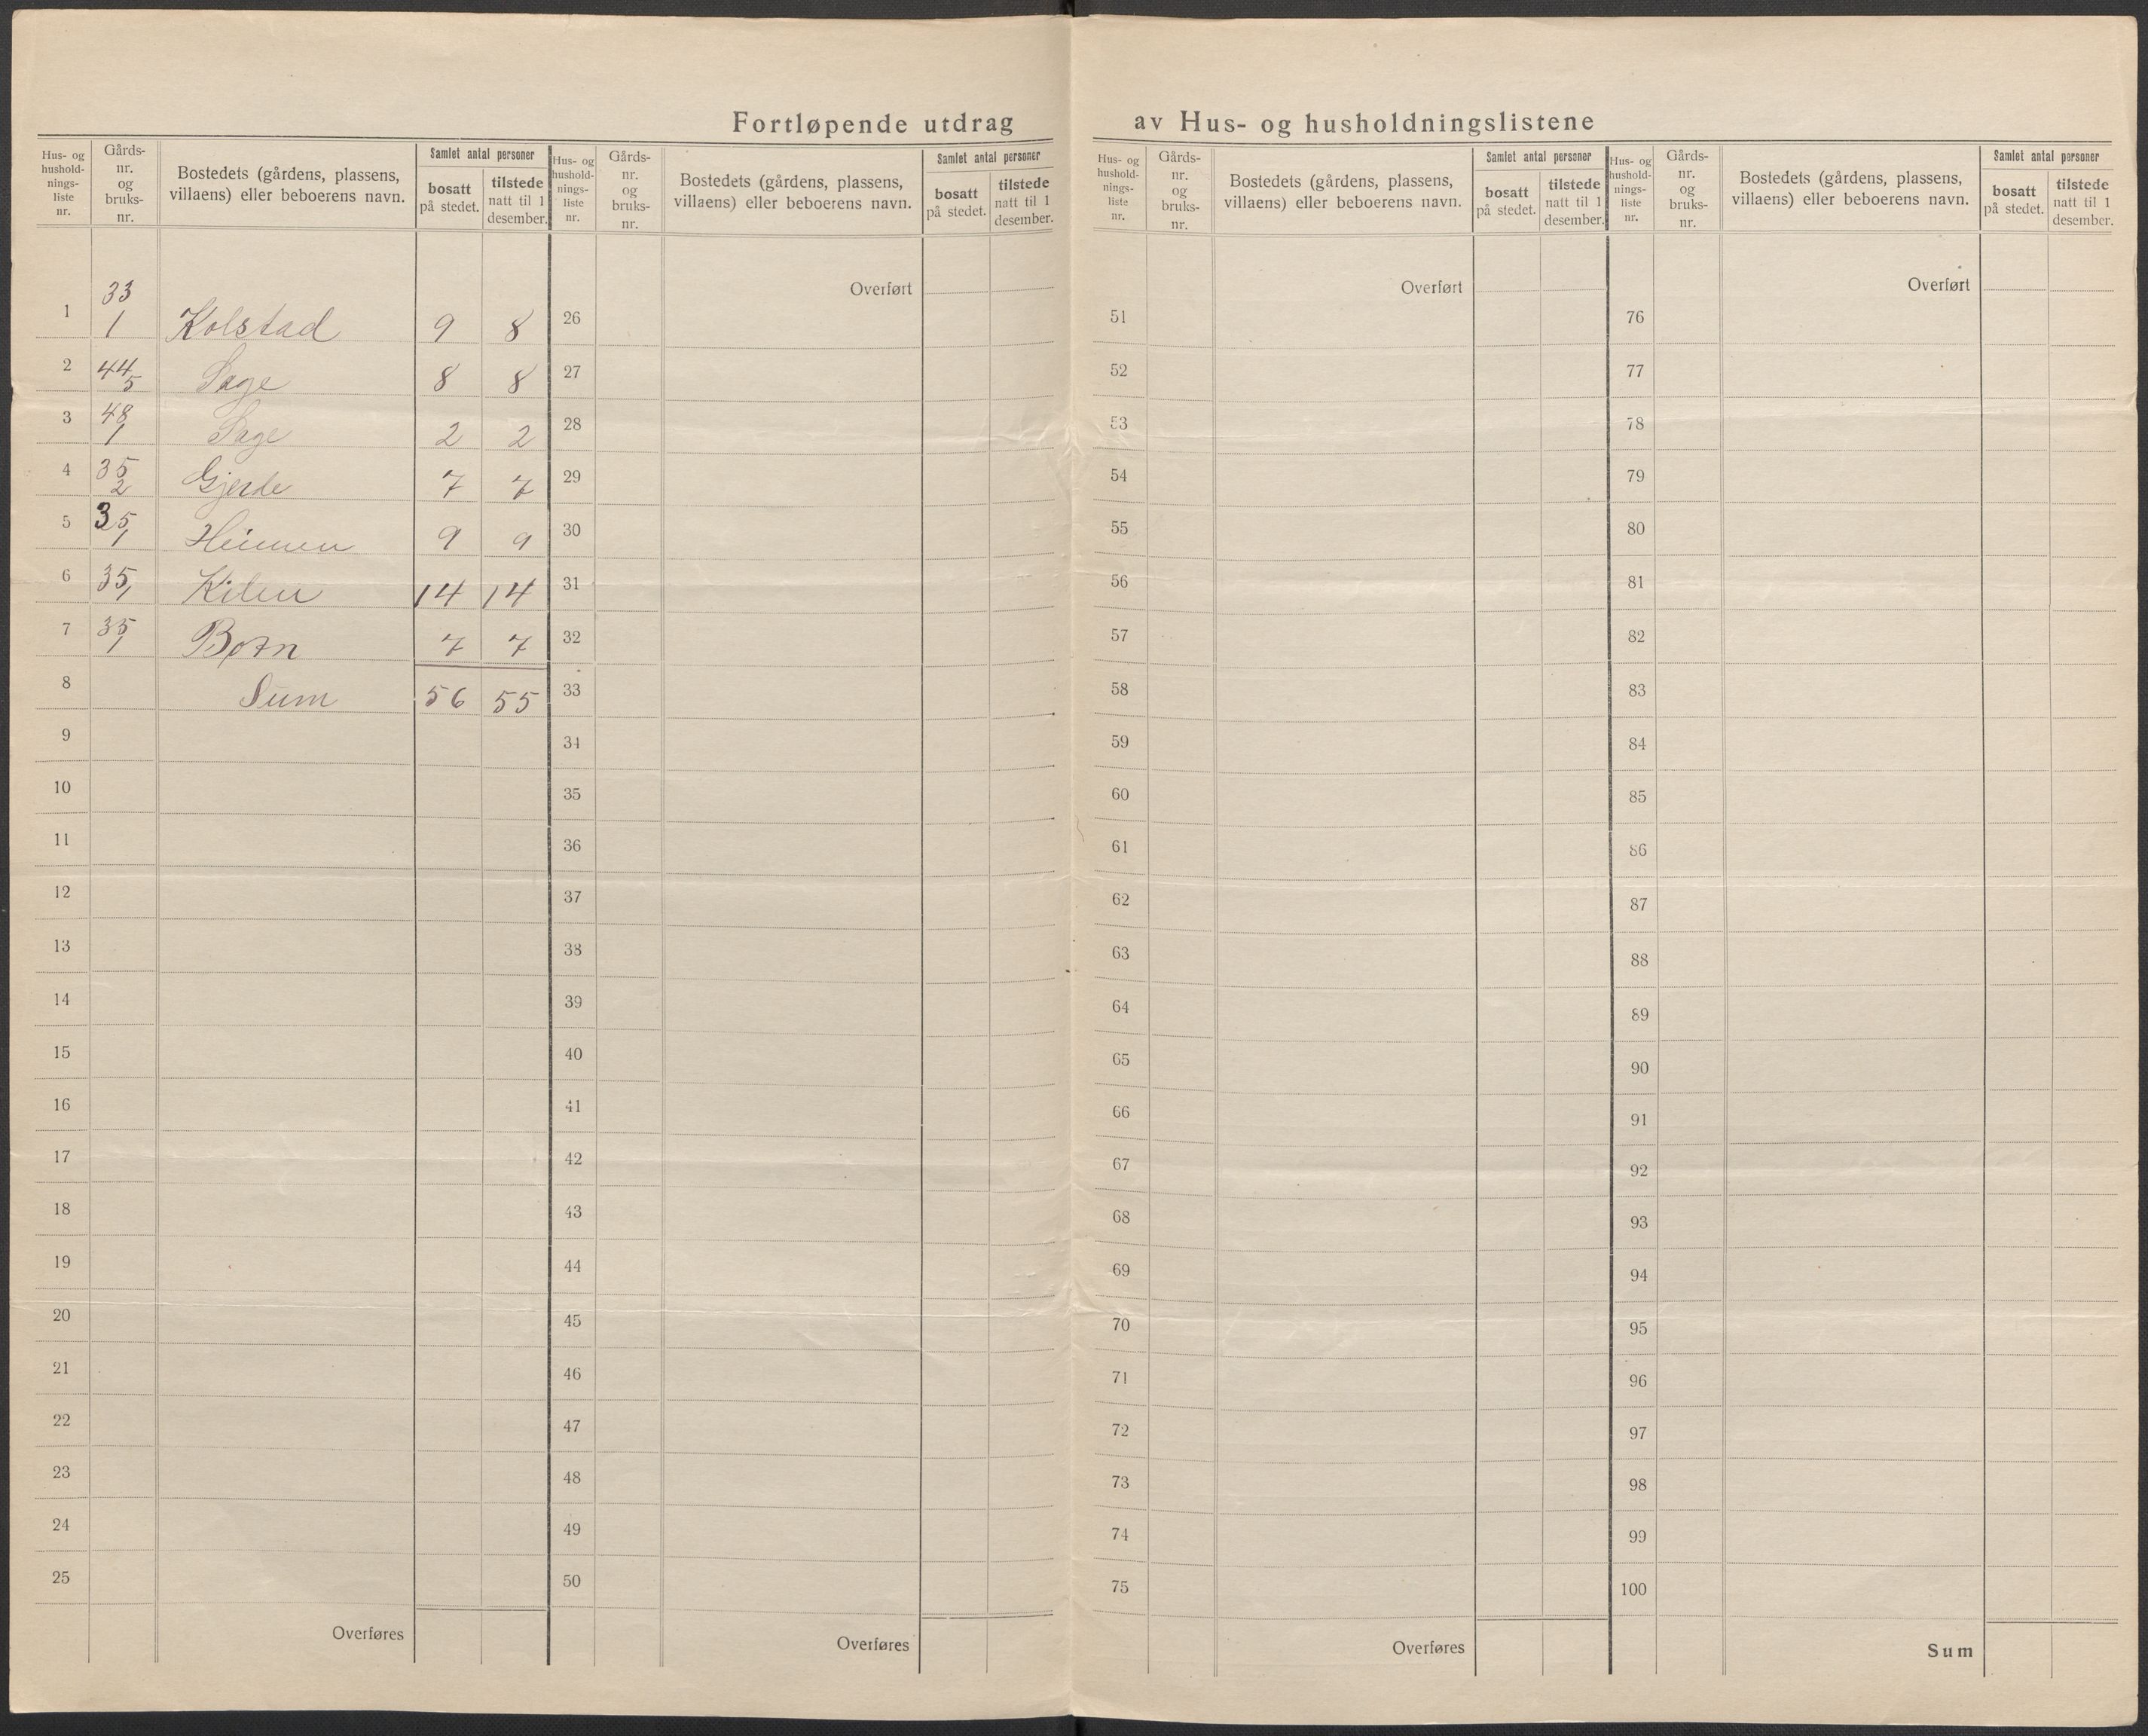 Fortløpende utdrag av Hus- og husholdningslistene
Hus- og hushold-nings-liste nr. Gårds-nr. og bruks-nr. Bostedets (gårdens, plassens, villaens) eller beboerens navn. Samlet antal personer bosatt på stedet. tilstede natt til 1 desember.
1 33/1 Kolstad 9 8
2 44/5 Sage 8 8
3 48/1 Sage 2 2
4 35/2 Gjerde 7 7
5 35/1 Heimen 9 9
6 35/1 Kilen 14 14
7 35/1 Børn 7 7
8 Sum 56 55
9
10
11
12
13
14
15
16
17
18
19
20
21
22
23
24
25
Overføres
Hus- og hushold-nings-liste nr. Gårds-nr. og bruks-nr. Bostedets (gårdens, plassens, villaens) eller beboerens navn. Samlet antal personer bosatt på stedet. tilstede natt til 1 desember.
Overført
26
27
28
29
30
31
32
33
34
35
36
37
38
39
40
41
42
43
44
45
46
47
48
49
50
Overføres
Hus- og hushold-nings-liste nr. Gårds-nr. og bruks-nr. Bostedets (gårdens, plassens, villaens) eller beboerens navn. Samlet antal personer bosatt på stedet. tilstede natt til 1 desember.
Overført
51
52
53
54
55
56
57
58
59
60
61
62
63
64
65
66
67
68
69
70
71
72
73
74
75
Overføres
Hus- og hushold-nings-liste nr. Gårds-nr. og bruks-nr. Bostedets (gårdens, plassens, villaens) eller beboerens navn. Samlet antal personer bosatt på stedet. tilstede natt til 1 desember.
Overført
76
77
78
79
80
81
82
83
84
85
86
87
88
89
90
91
92
93
94
95
96
97
98
99
100
Sum